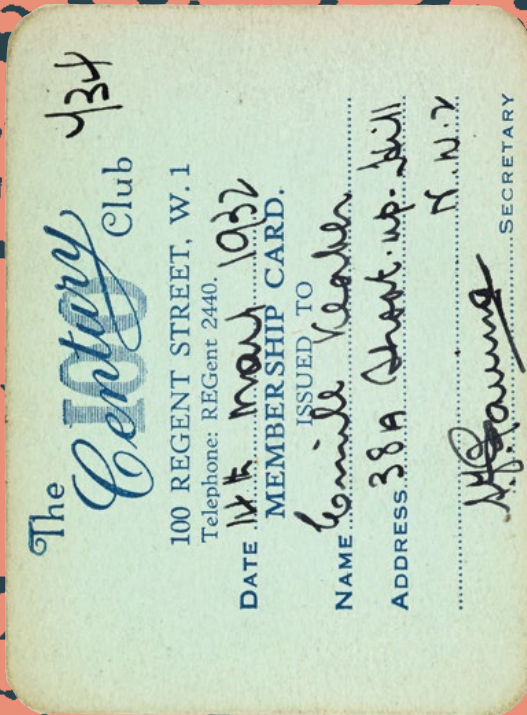 The
Century Club
100
434
100 REGENT STREET, W. 1
Telephone: REGent 2440.
DATE 12th May 1932
MEMBERSHIP CARD.
ISSUED TO
NAME Emile
ADDRESS 38A Shoot-up-Hill
N.W.2
SECRETARY